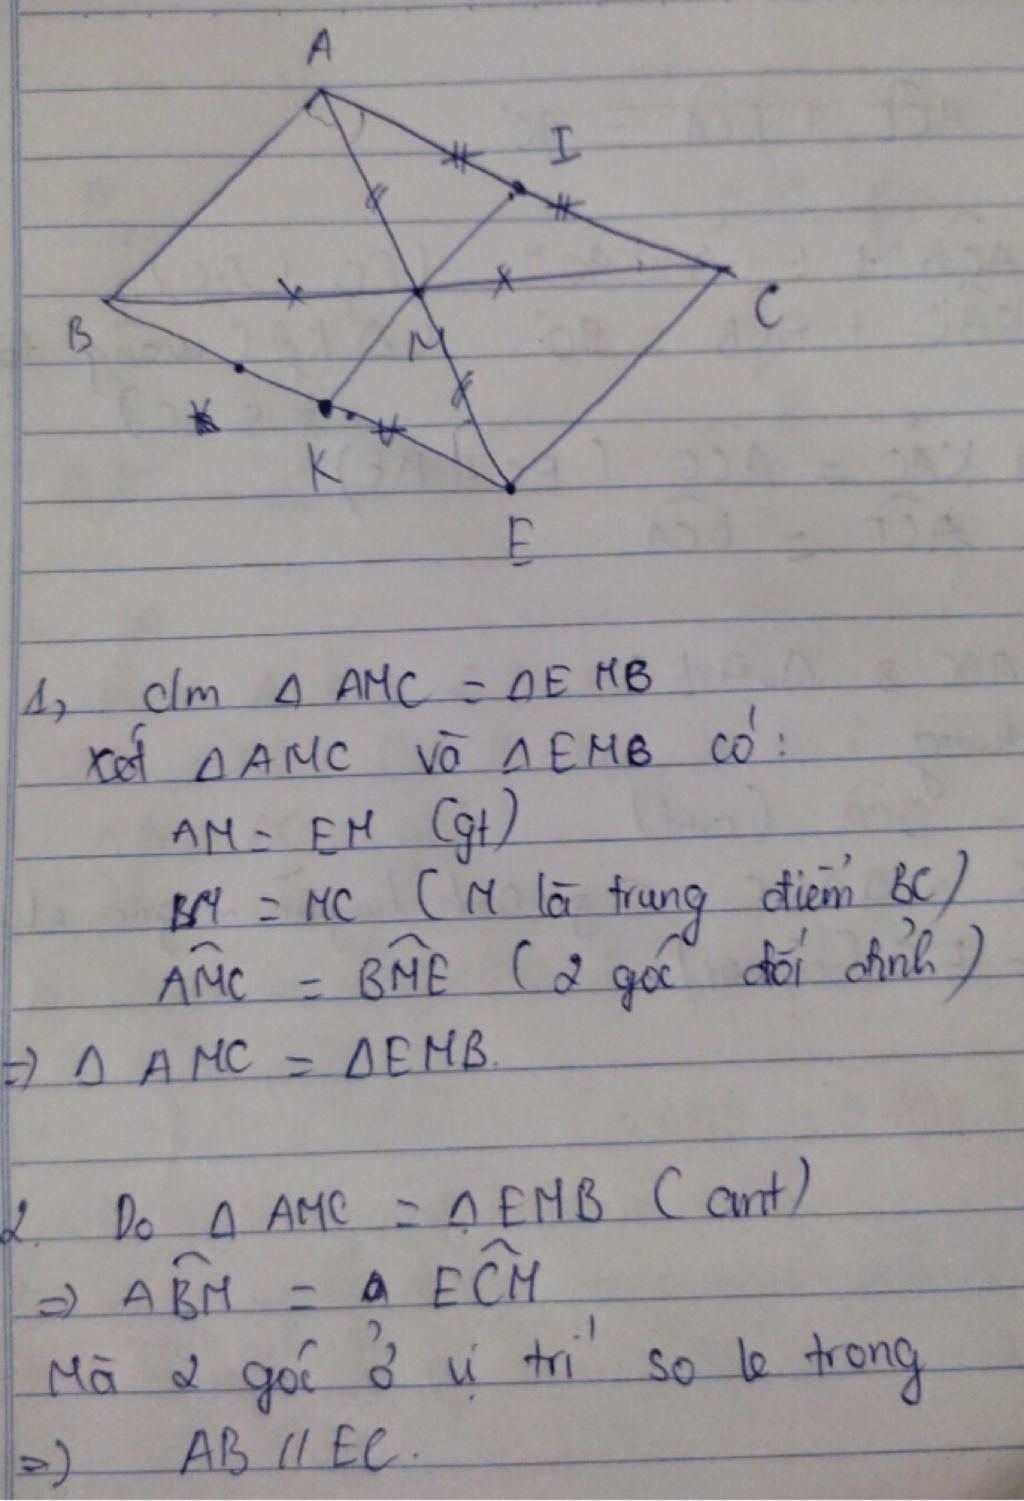 A
I
B
M
C
K
E
1, c/m Δ AMC = ΔEMB
xét ΔAMC và ΔEMB có:
AM = EM (gt)
BM = MC (M là trung điểm BC)
AMC = BME (2 góc đối đỉnh)
=> Δ AMC = ΔEMB.
2. Do Δ AMC = ΔEMB (cmt)
=> ABM = ECM
Mà 2 góc ở vị trí so le trong
=) AB // EC.